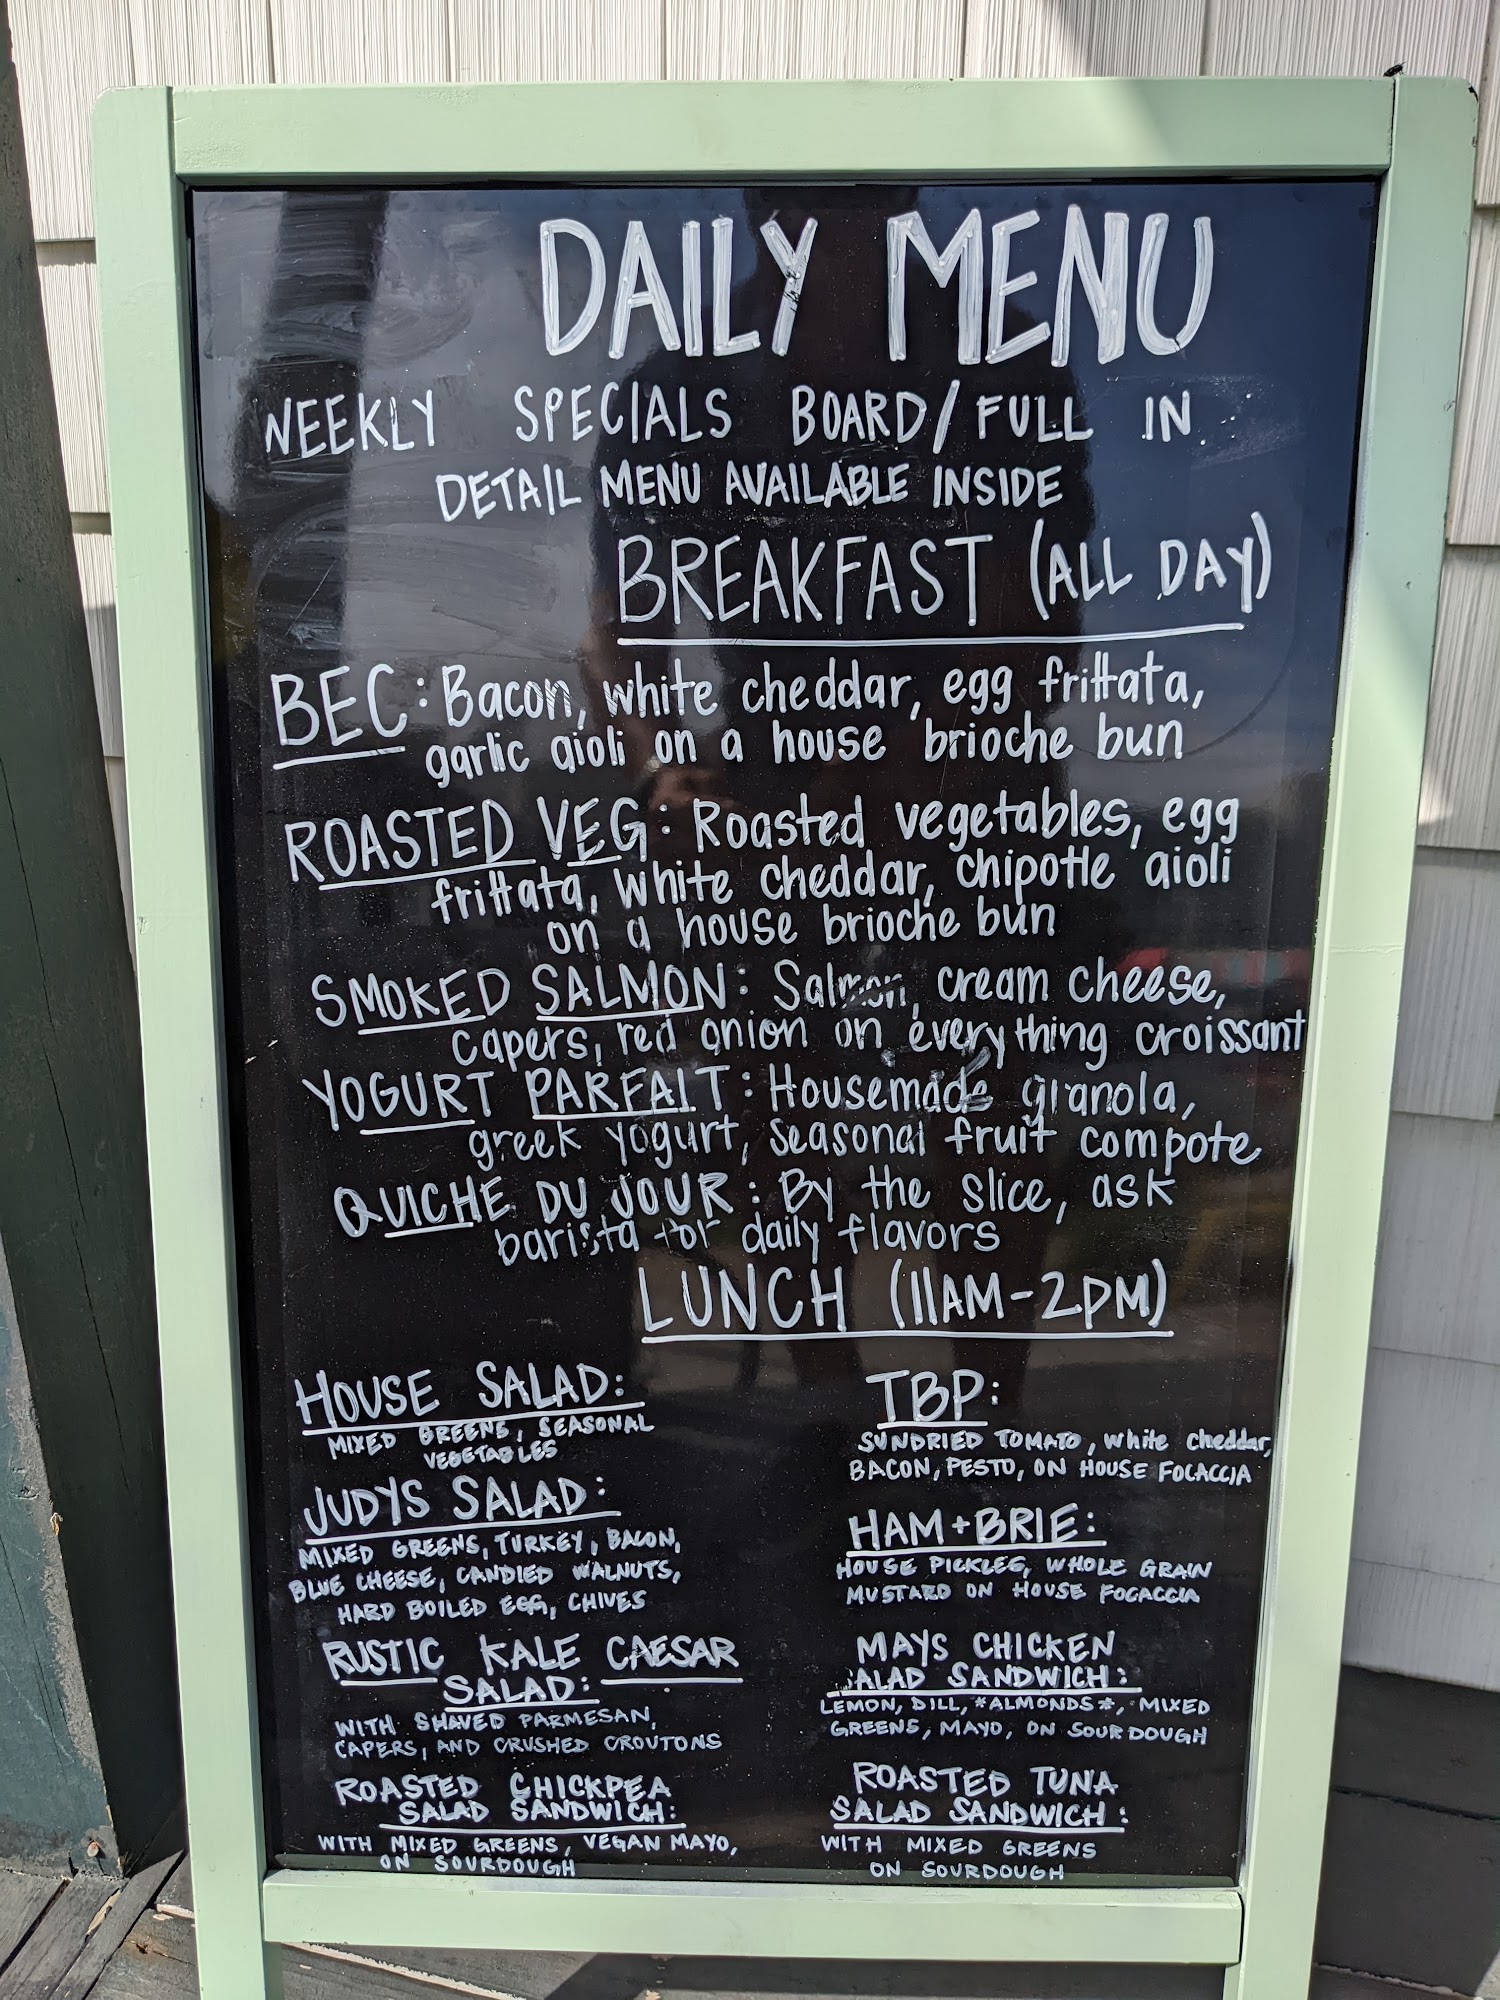 DAILY MENU
WEEKLY SPECIALS BOARD/FULL IN
DETAIL MENU AVAILABLE INSIDE
BREAKFAST (ALL DAY)
BEC: Bacon, white cheddar, egg frittata,
garlic aioli on a house brioche bun
ROASTED VEG: Roasted vegetables, egg
frittata, white cheddar, chipotle aioli
on a house brioche bun
SMOKED SALMON: Salmon, cream cheese,
capers, red onion on everything croissant
YOGURT PARFAIT: Housemade granola,
greek yogurt, seasonal fruit compote
QUICHE DU JOUR: By the slice, ask
barista for daily flavors
LUNCH (11AM-2PM)
HOUSE SALAD:
MIXED GREENS, SEASONAL
VEGETABLES
JUDYS SALAD:
MIXED GREENS, TURKEY, BACON,
BLUE CHEESE, CANDIED WALNUTS,
HARD BOILED EGG, CHIVES
RUSTIC KALE CAESAR
SALAD:
WITH SHAVED PARMESAN,
CAPERS, AND CRUSHED CROUTONS
ROASTED CHICKPEA
SALAD SANDWICH:
WITH MIXED GREENS, VEGAN MAYO,
ON SOURDOUGH
TBP:
SUNDRIED TOMATO, white cheddar,
BACON, PESTO, ON HOUSE FOCACCIA
HAM + BRIE:
HOUSE PICKLES, WHOLE GRAIN
MUSTARD ON HOUSE FOCACCIA
MAYS CHICKEN
SALAD SANDWICH:
LEMON, DILL, *ALMONDS*, MIXED
GREENS, MAYO, ON SOURDOUGH
ROASTED TUNA
SALAD SANDWICH:
WITH MIXED GREENS
ON SOURDOUGH